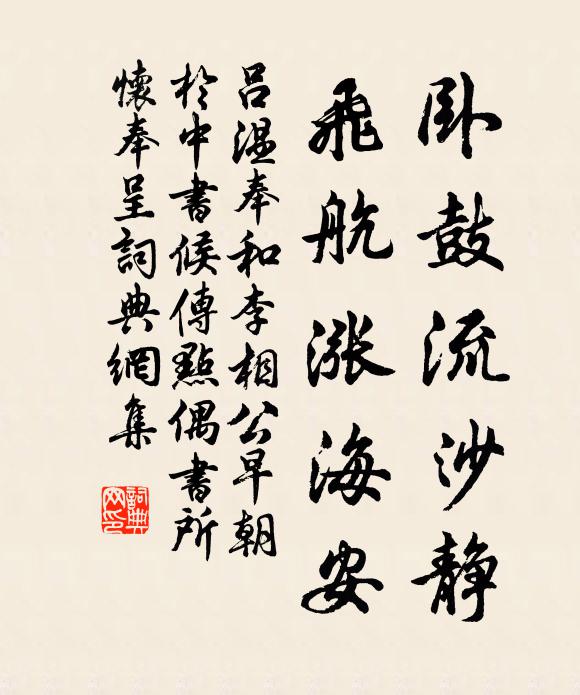 卧鼓流沙静
飛航漲海安
吕温奉和李相公早朝
於中書候傳點偶書所
懷奉呈詞典網集
詞典网印